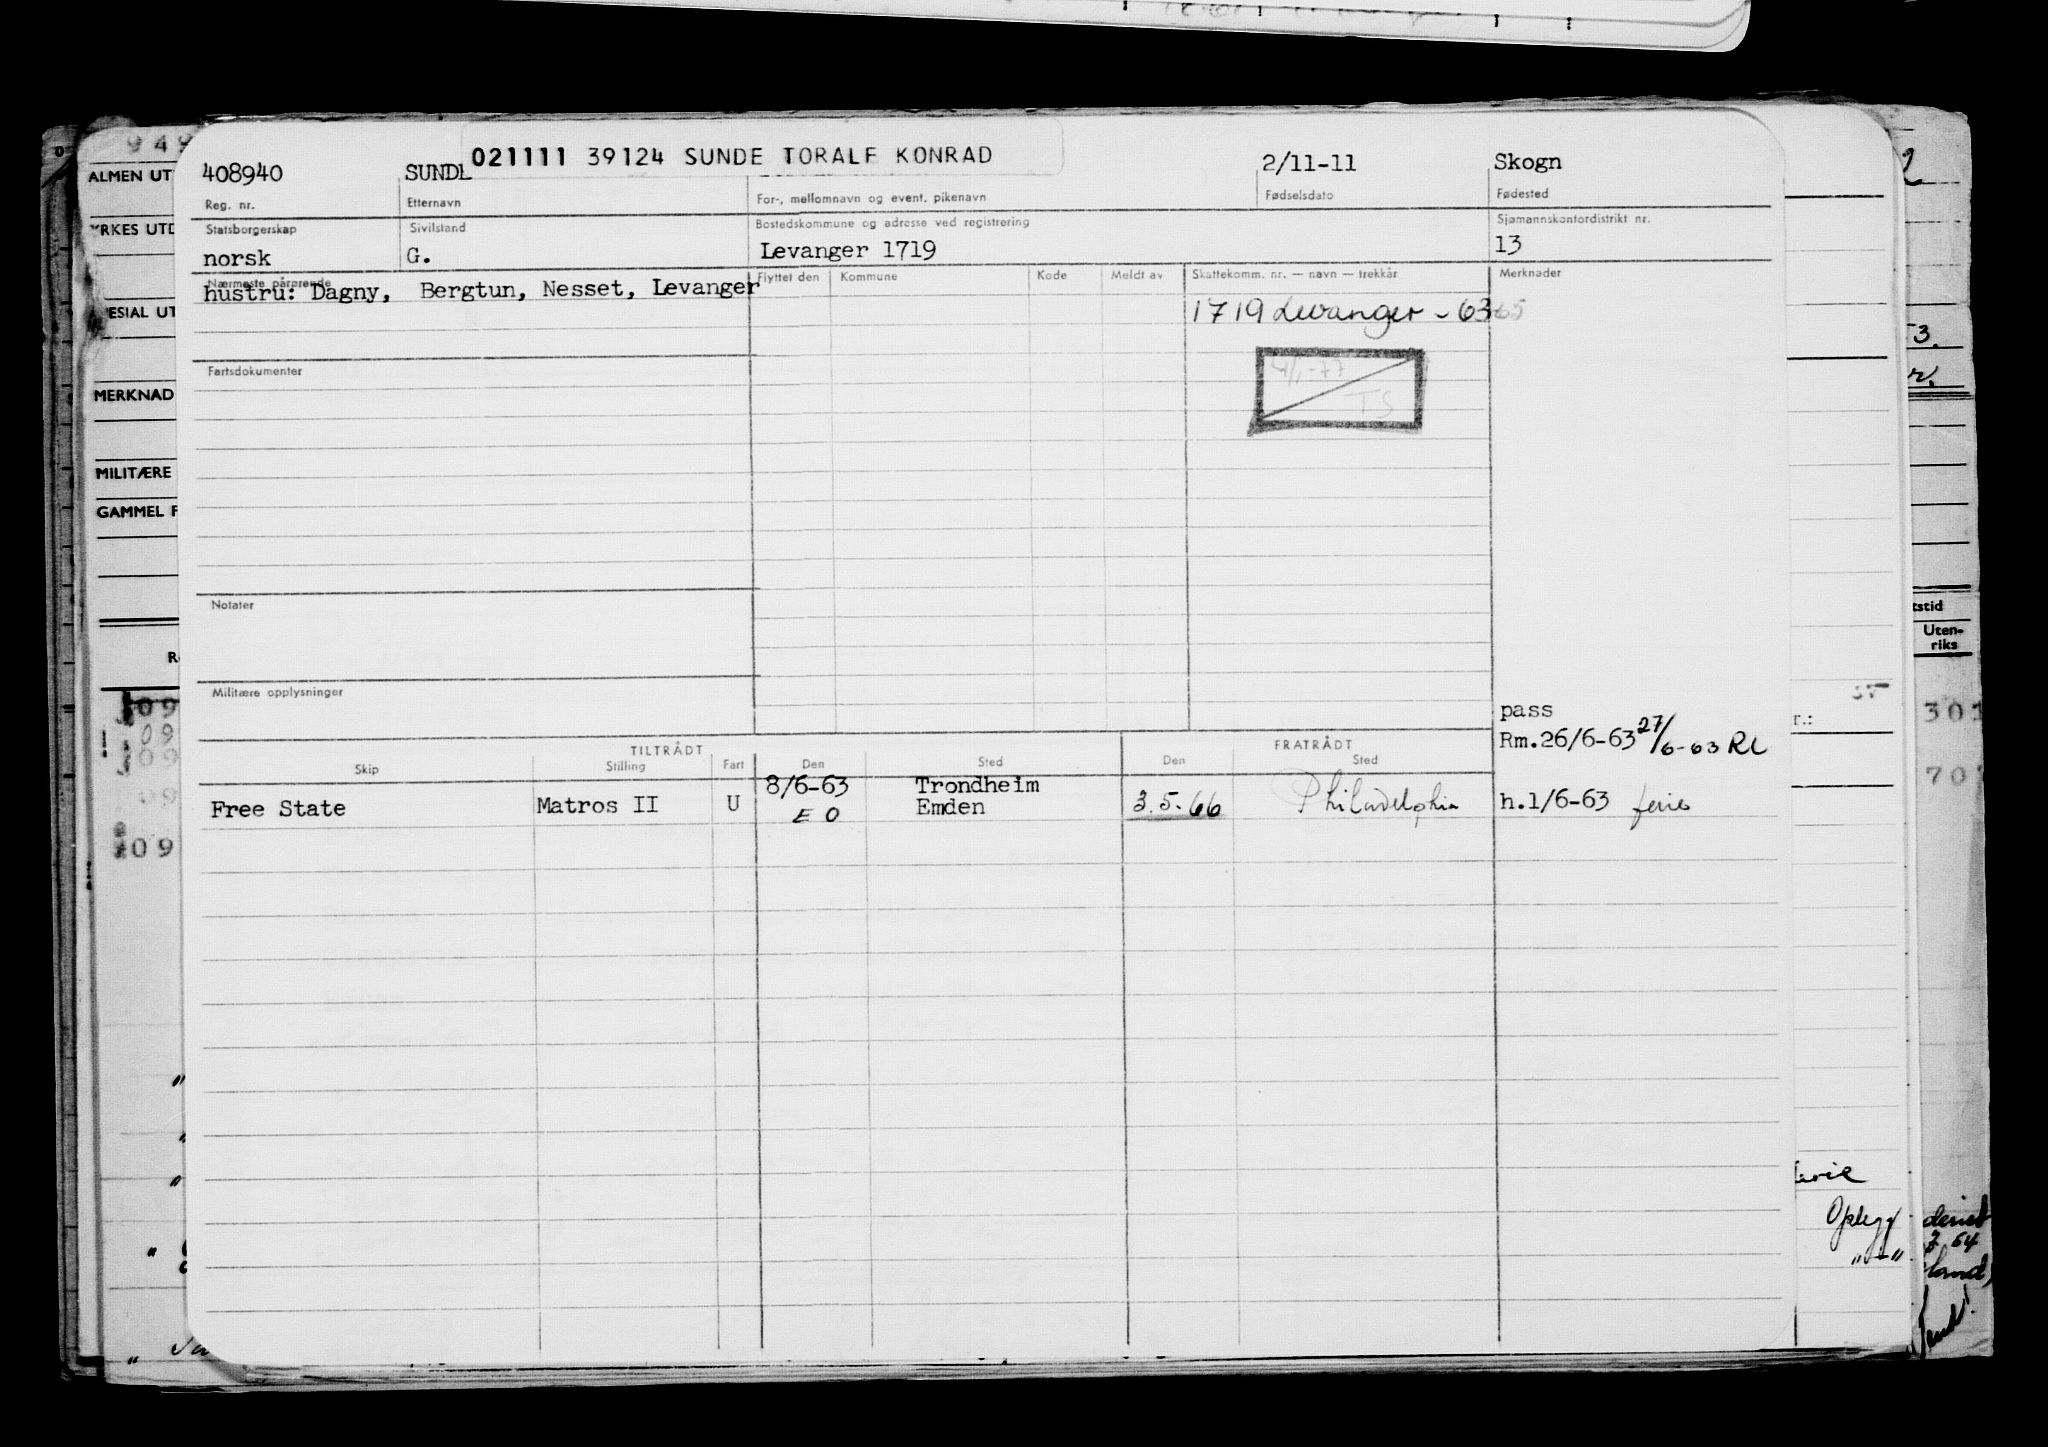 021111 39124 SUNDE TORALF KONRAD
408940 SUNDE 2/11-11 Skogn
Reg. nr. Etternavn For-, mellomnavn og event. pikenavn Fødselsdato Fødested
Statsborgerskap Sivilstand Bostedskommune og adresse ved registrering Sjømannskontordistrikt nr.
norsk G. Levanger 1719 13
Nærmeste pårørende Flyttet den Kommune Kode Meldt av Skattekomm. nr. — navn — trekkår Merknader
hustru: Dagny, Bergtun, Nesset, Levanger
1719 Levanger - 63 65
4/1-77
TS
Fartsdokumenter
Notater
Militære opplysninger
pass
Rm.26/6-63 27/6-63 RL
TILTRÅDT FRATRÅDT
Skip Stilling Fart Den Sted Den Sted
8/6-63 Trondheim
Free State Matros II U EO Emden 3.5.66 Philadelphia h.1/6-63 ferie
949
ALMEN UT
YRKES UTD
ESIAL UT
MERKNAD
MILITÆRE
GAMMEL F
R
09
09
09
09
09
2
3.
r.
tstid
Uten-
riks
301
r.:
70
Opplegg
"-"
64